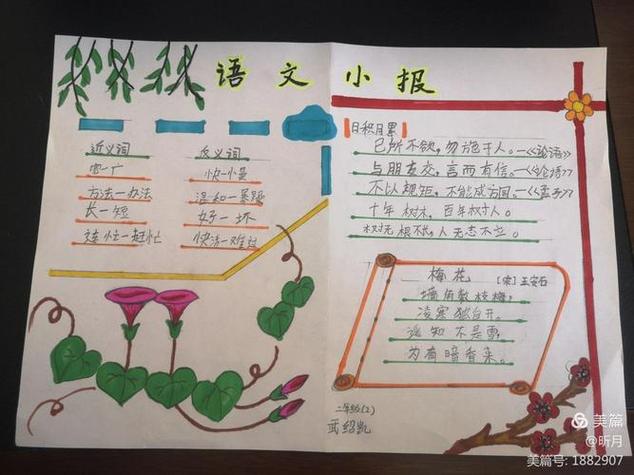 语文小报
近义词
宽一广
方法一办法
长一短
连忙一赶忙
反义词
快一慢
温和一暴躁
好一坏
快活一难过
日积月累
己所不欲，勿施于人。一《论语》
与朋友交，言而有信。《论语》
不以规矩，不能成方圆。《孟子》
十年树木，百年树人。
树无根不长，人无志不立。
梅花
［宋］王安石
墙角数枝梅，
凌寒独自开。
遥知不是雪，
为有暗香来。
二年级(2)
武绍凯
美篇
@昕月
美篇号：1882907